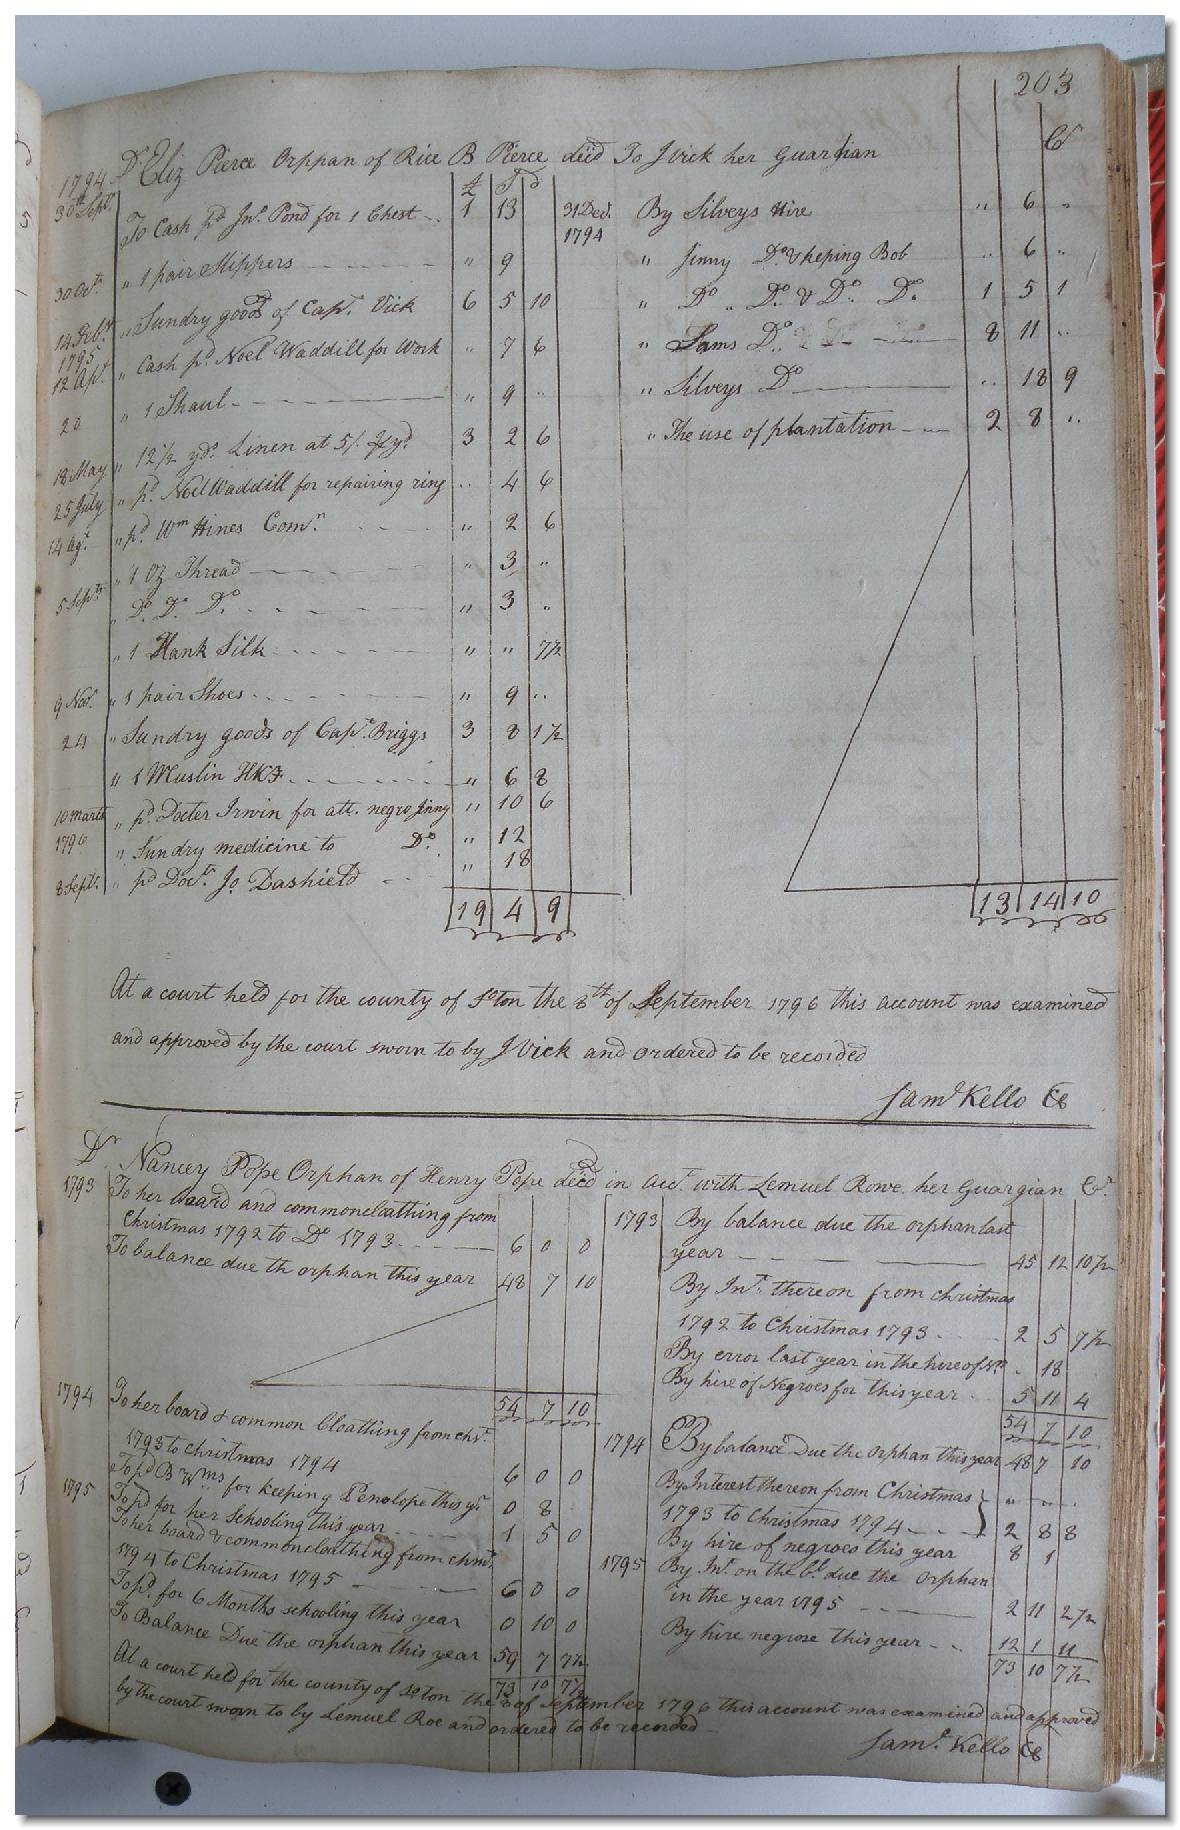 203
Dr. Eliz Pierce Orppan of Rice B Pierce decd To J Vick her Guardian Cr
1794 £ S d
30th Sept. To Cash pd Jno. Pond for 1 Chest 1 13
" 1 pair Slippers " 9
30 Octr. " Sundry goods of Capt. Vick 6 5 10
14 Febr. 1795 " Cash pd. Noel Waddill for Work " 7 6
12 Apr. " 1 Shaul " 9 "
20 " 12 1/2 yds. Linen at 5/. pr yd. 3 2 6
18 May " pd. Noel Waddill for repairing ring " 4 6
25 July " pd. Wm Hines Comr. " 2 6
14 Agt. " 1 Oz Thread " 3 "
5 Sept. " Do. Do. Do. " 3 "
" 1 Hank Silk " " 7 1/2
9 Nov. " 1 pair Shoes " 9 "
24 " Sundry goods of Capt. Briggs 3 8 1 1/2
" 1 Muslin HKf " 6 8
10 March 1796 " pd. Docter Irwin for att. negro Jinny " 10 6
" Sundry medicine to Do. " 12
8 Sept. " pd Doct. Jo Dashield " 18
19 4 9
31 Decr. 1794 By Silveys Hire " 6 "
" Jinny Do. & keping Bob " 6 "
" Do " Do. & Do. Do. 1 5 1
" Sams Do. 8 11 "
" Silveys Do " 18 9
" The use of plantation 2 8 "
13 14 10
At a court held for the county of Soton the 8th of September 1796 this account was examined
and approved by the court sworn to by J Vick and ordered to be recorded
Saml Kello CC
Dr Nancey Pope Orphan of Henry Pope decd in acct. with Lemuel Rowe her Guargian Cr.
1793 To her board and common cloathing from
Christmas 1792 to Do 1793 6 0 0
To balance due th orphan this year 48 7 10
54 7 10
1794 To her board & common Cloathing from Chrt.
1793 to Christmas 1794 6 0 0
To pd B Wms for keeping Penelope this yr. 0 8
To pd for her schooling this year 1 5 0
1795 To her board & common cloathing from chrt.
1794 to Christmas 1795 6 0 0
To pd. for 6 Months schooling this year 0 10 0
To Balance Due the orphan this year 59 7 7 1/2
73 10 7 1/2
1793 By balance due the orphan last
year 45 12 10 1/2
By Int. thereon from christmas
1792 to Christmas 1793 2 5 7 1/2
By error last year in the hire of N. " 18
By hire of Negroes for this year 5 11 4
54 7 10
1794 By balance Due the Orphan this year 48 7 10
By Interest thereon from Christmas " " "
1793 to Christmas 1794 2 8 8
By hire of negroes this year 8 1
1795 By Int. on the bl. due the orphan
in the year 1795 2 11 2 1/2
By hire negrose this year 12 1 11
73 10 7 1/2
At a court held for the county of Soton the 8 of September 1796 this account was examined and approved
by the court sworn to by Lemuel Roe and ordered to be recorded
Saml. Kello CC